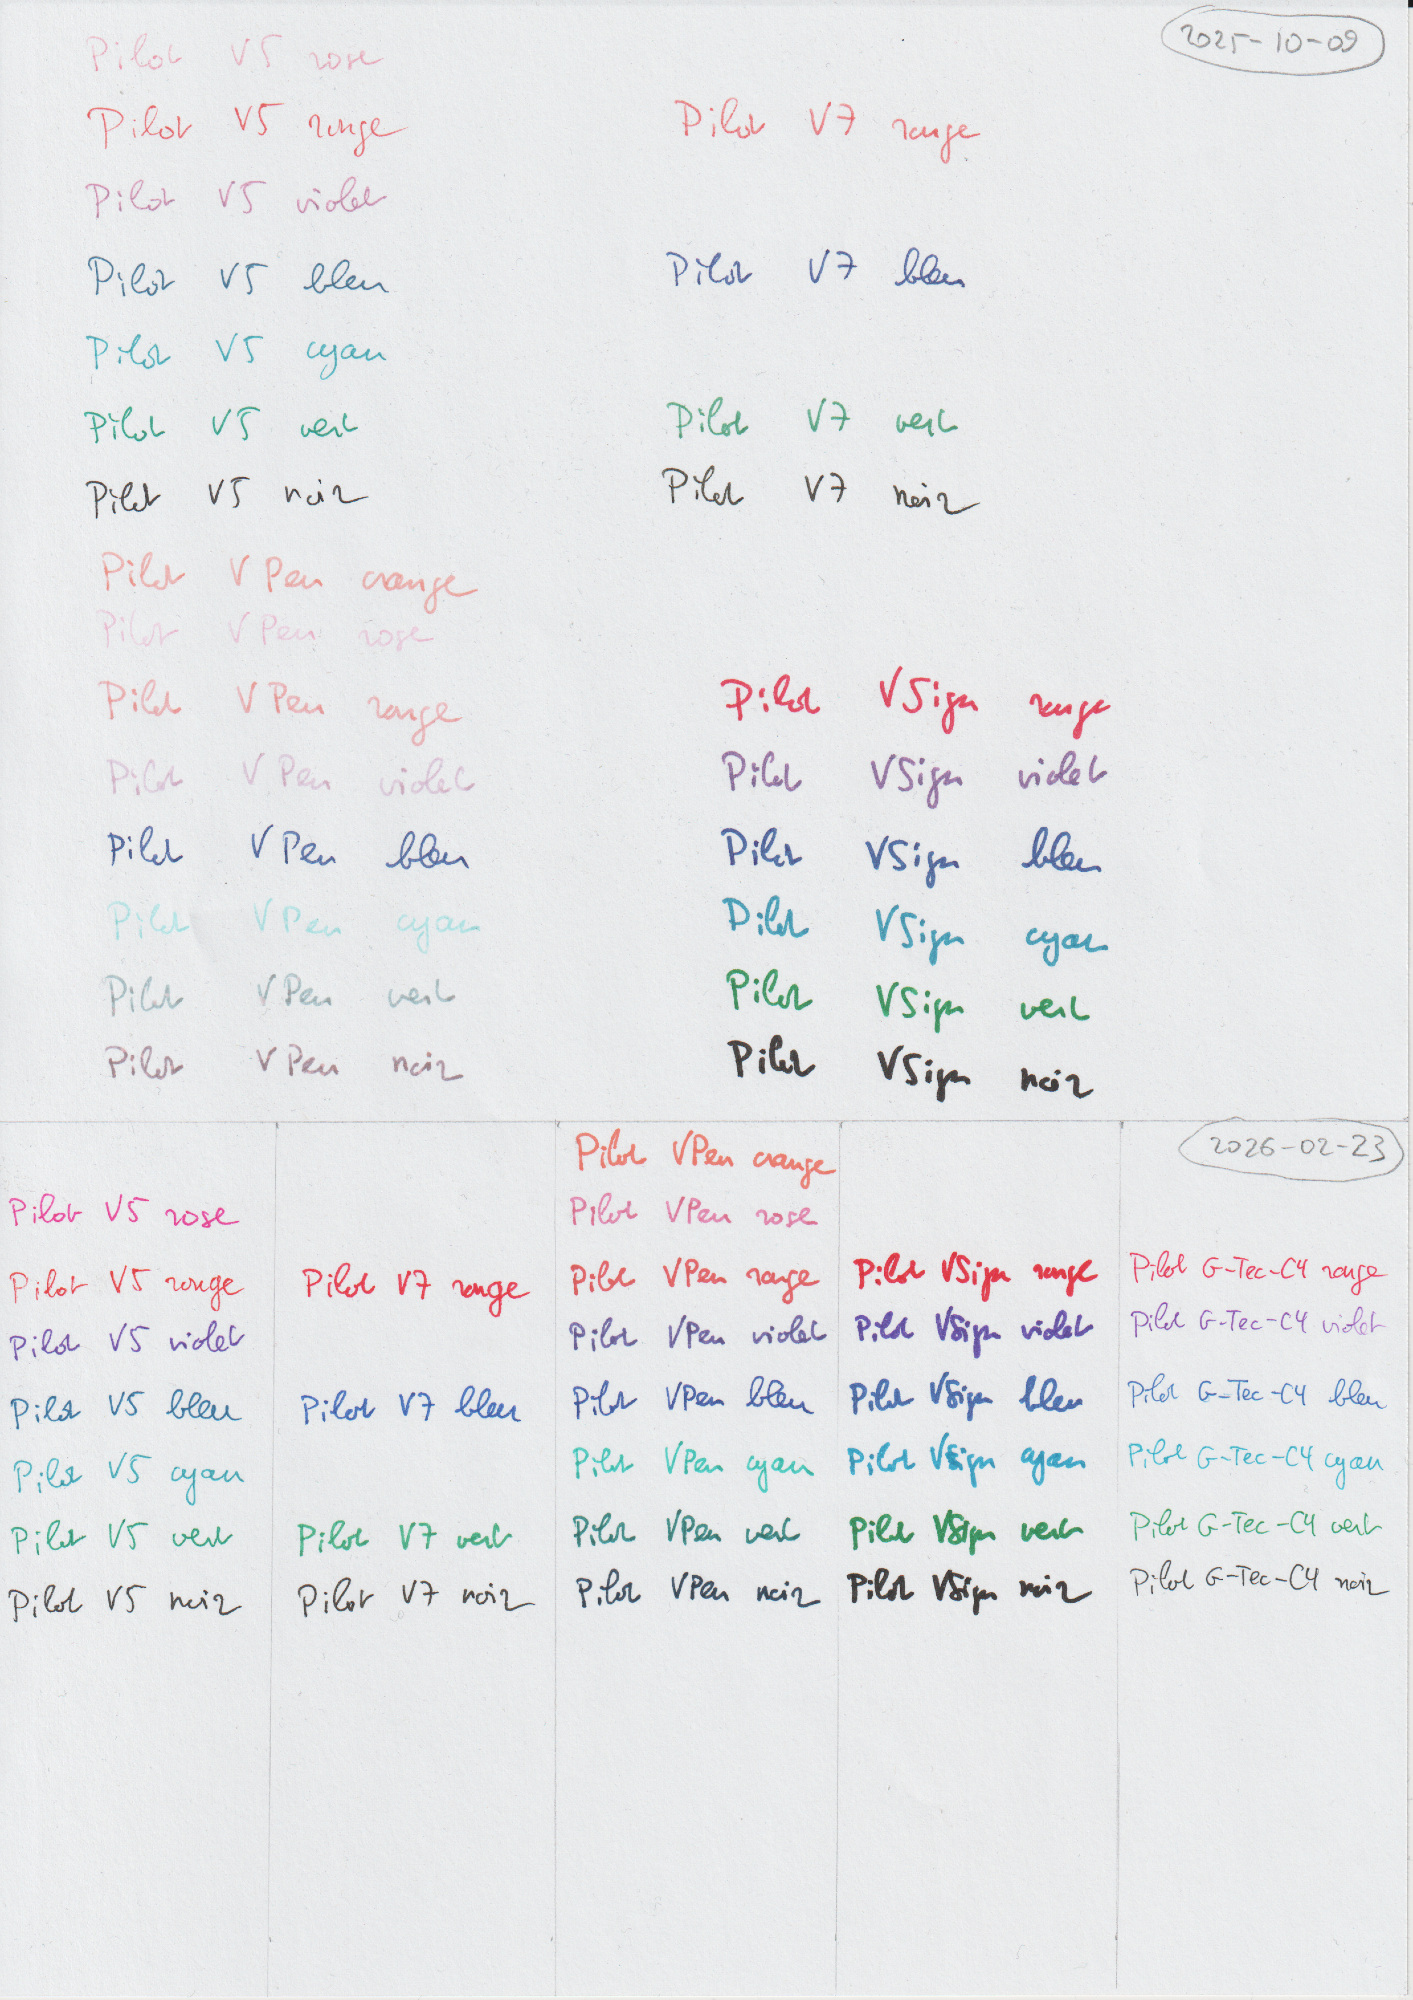 2025-10-09
Pilot V5 rose
Pilot V5 rouge Pilot V7 rouge
Pilot V5 violet
Pilot V5 bleu Pilot V7 bleu
Pilot V5 cyan
Pilot V5 vert Pilot V7 vert
Pilot V5 noir Pilot V7 noir
Pilot VPen orange
Pilot VPen rose
Pilot VPen rouge Pilot VSign rouge
Pilot VPen violet Pilot VSign violet
Pilot VPen bleu Pilot VSign bleu
Pilot VPen cyan Pilot VSign cyan
Pilot VPen vert Pilot VSign vert
Pilot VPen noir Pilot VSign noir
Pilot VPen orange 2026-02-23
Pilot V5 rose Pilot VPen rose
Pilot V5 rouge Pilot V7 rouge Pilot VPen rouge Pilot VSign rouge Pilot G-Tec-C4 rouge
Pilot V5 violet Pilot VPen violet Pilot VSign violet Pilot G-Tec-C4 violet
Pilot V5 bleu Pilot V7 bleu Pilot VPen bleu Pilot VSign bleu Pilot G-Tec-C4 bleu
Pilot V5 cyan Pilot VPen cyan Pilot VSign cyan Pilot G-Tec-C4 cyan
Pilot V5 vert Pilot V7 vert Pilot VPen vert Pilot VSign vert Pilot G-Tec-C4 vert
Pilot V5 noir Pilot V7 noir Pilot VPen noir Pilot VSign noir Pilot G-Tec-C4 noir